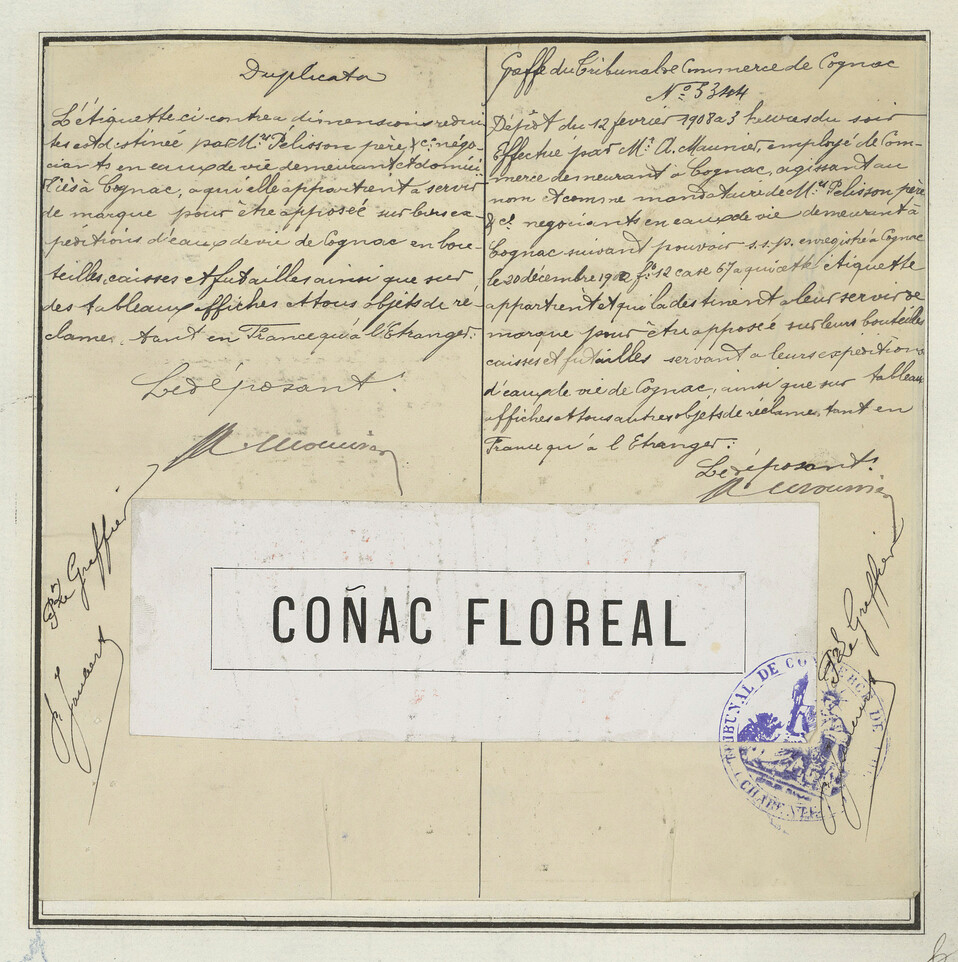 Duplicata
L'étiquette ci-contre a dimensions rédui-
tes est destinée par Mrs Pélisson père & Cie négo-
ciants en eaux de vie demeurant et domici-
liés à Cognac, a qui elle appartient a servir
de marque pour être apposée sur leurs ex-
péditions d'eaux de vie de Cognac en bou-
teilles, caisses et futailles ainsi que sur
des tableaux affiches et tous objets de ré-
clame, tant en France qu'à l'Etranger.
Le déposant:
A Maunier
Pr le Greffier
Greffe du Tribunal de Commerce de Cognac
No 5344
Dépôt du 12 février 1908 a 3 heures du soir
Effectué par Mr. A. Maunier, employé de Com-
merce demeurant à Cognac, agissant au
nom et comme mandataire de Mrs Pelisson père
& Cie negociants en eaux de vie demeurant à
Cognac suivant pouvoir s.s.p. enregistré à Cognac
le 20 décembre fo 12 case 67 a qui cette étiquette
appartient et qui la destinent a leur servir de
marque pour être apposée sur leurs bouteilles
caisses et futailles servant a leurs expeditions
d'eaux de vie de Cognac, ainsi que sur tableaux
affiches et tous autres objets de réclame, tant en
France qu'à l'Etranger.
Le déposant:
A Maunier
Pr le Greffier
COÑAC FLOREAL
TRIBUNAL DE COMMERCE DE
CHARENTE